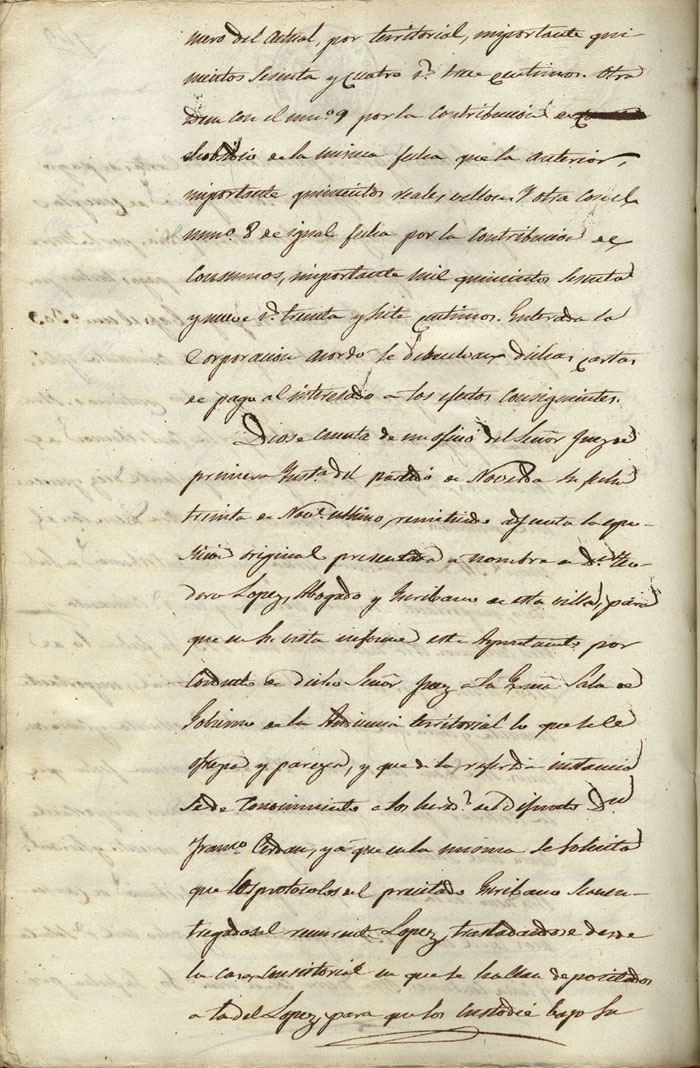 mero del actual, por territorial, importante qui-
nientos sesenta y cuatro r.s trece centimos. Otra
idem con el num.o 9 por la contribucion de
subsidio de la misma fecha que la anterior,
importante quinientos reales vellon. Y otra con el
num.o 8 de igual fecha por la contribucion de
Consumos, importante mil quinientos sesenta
y nueve r.s treinta y siete centimos. Enterada la
Corporacion acordó se debuelvan dichas cartas
de pago al interesado a los efectos consiguientes.
Diose cuenta de un oficio del Señor Juez de
primera Inst.a del partido de Novelda su fecha
treinta de Nov.e ultimo, remitiendo adjunta la espo-
sicion original presentada a nombre de D.n Teo-
doro Lopez, Abogado y Escribano de esta villa, para
que en su vista informe este Ayuntamiento por
conducto de dicho Señor Juez a la Sala de
Gobierno de la Audiencia territorial lo que se le
ofrezca y parezca, y que de la referida instancia
se dé conocimiento a los hered.s del difunto D.n
Fran.co Cerdan, ya que en la misma se solicita
que los protocolos del precitado Escribano sean en-
tregados al recurrente Lopez, trasladandose desde
la casa consistorial en que se hallan depositados
a la del Lopez, para que los custodie bajo su